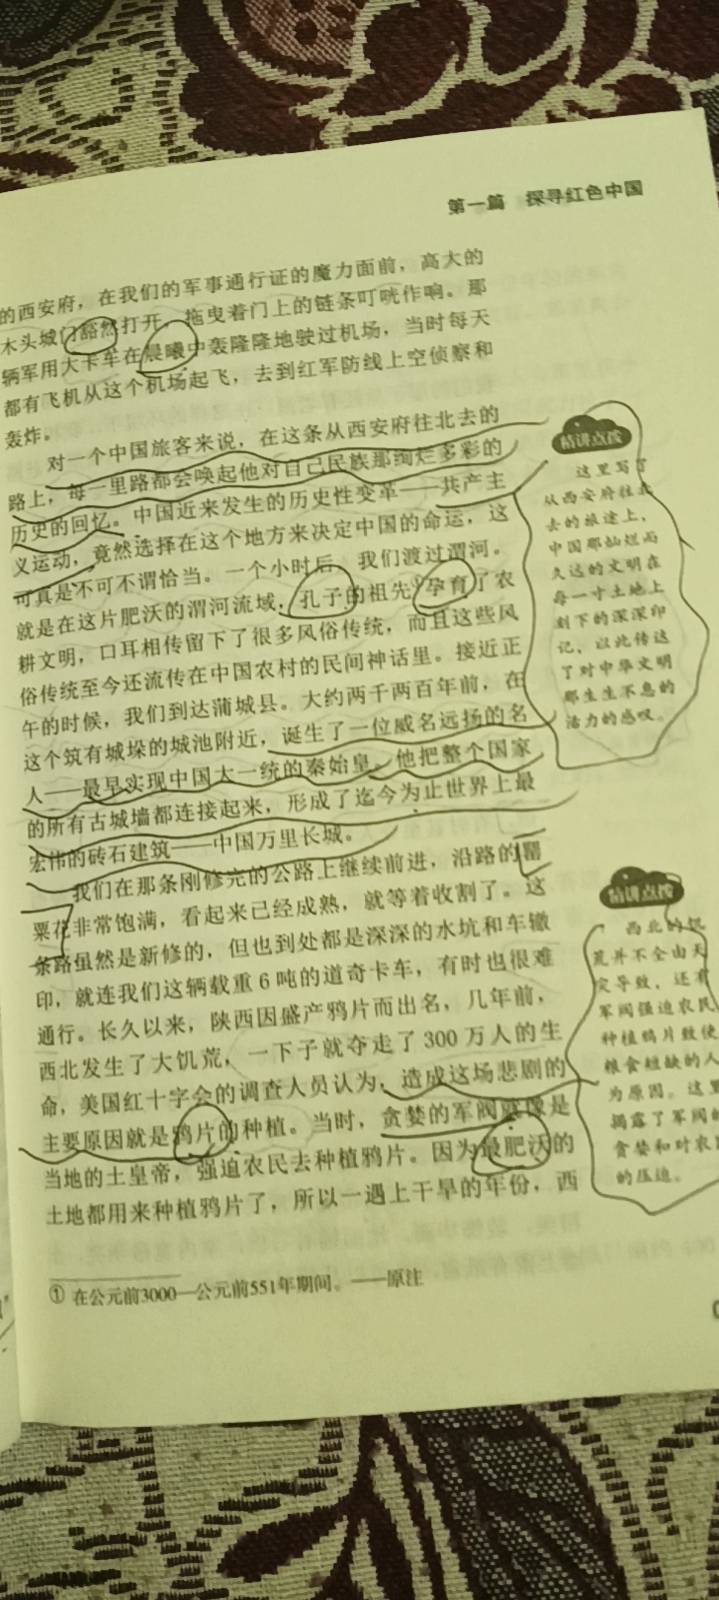 第一篇 探寻红色中国
的西安府，在我们的军事通行证的魔力面前，高大的
木头城门豁然打开，拖曳着门上的链条叮咣作响。那
辆军用大卡车在晨曦中轰隆隆地驶过机场，当时每天
都有飞机从这个机场起飞，去到红军防线上空侦察和
轰炸。
对一个中国旅客来说，在这条从西安府往北去的
路上，每一里路都会唤起他对自己民族那绚烂多彩的
历史的回忆。中国近来发生的历史性变革——共产主
义运动，竟然选择在这个地方来决定中国的命运，这
可真是不可不谓恰当。一个小时后，我们渡过渭河。
就是在这片肥沃的渭河流域，孔子的祖先①孕育了农
耕文明，口耳相传留下了很多风俗传统，而且这些风
俗传统至今还流传在中国农村的民间神话里。接近正
午的时候，我们到达蒲城县。大约两千两百年前，在
这个筑有城垛的城池附近，诞生了一位威名远扬的名
人——最早实现中国大一统的秦始皇。他把整个国家
的所有古城墙都连接起来，形成了迄今为止世界上最
宏伟的砖石建筑——中国万里长城。
我们在那条刚修完的公路上继续前进，沿路的罂
粟花非常饱满，看起来已经成熟，就等着收割了。这
条路虽然是新修的，但也到处都是深深的水坑和车辙
印，就连我们这辆载重6吨的道奇卡车，有时也很难
通行。长久以来，陕西因盛产鸦片而出名，几年前，
西北发生了大饥荒，一下子就夺走了300万人的生
命，美国红十字会的调查人员认为，造成这场悲剧的
主要原因就是鸦片的种植。当时，贪婪的军阀就像是
当地的土皇帝，强迫农民去种植鸦片。因为最肥沃的
土地都用来种植鸦片了，所以一遇上干旱的年份，西
① 在公元前3000—公元前551年期间。——原注
精讲点拨
这里写了
从西安府往北
去的旅途上，
中国那灿烂而
久远的文明在
每一寸土地上
刻下的深深印
记，以此传达
了对中华文明
那生生不息的
活力的感叹。
精讲点拨
西北的饥
荒并不全由天
灾导致，还有
军阀强迫农民
种植鸦片致使
粮食短缺的人
为原因。这里
揭露了军阀的
贪婪和对农民
的压迫。